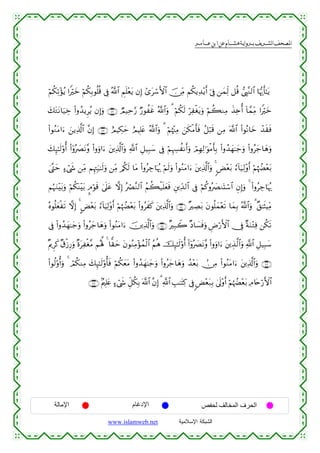 المصحف الشريف برواية هشام عن ابن عامر
يَٰٓأَيُّهَا ٱلنَّبِىُّ قُل لِّمَن فِىٓ أَيْدِيكُم مِّنَ ٱلْأَسْرَىٰٓ إِن يَعْلَمِ ٱللَّهُ فِى قُلُوبِكُمْ خَيْرًا يُؤْتِكُمْ
خَيْرًا مِّمَّآ أُخِذَ مِنكُمْ وَيَغْفِرْ لَكُمْ ۗ وَٱللَّهُ غَفُورٌ رَّحِيمٌ ﴿٧٠﴾ وَإِن يُرِيدُوا۟ خِيَانَتَكَ
فَقَدْ خَانُوا۟ ٱللَّهَ مِن قَبْلُ فَأَمْكَنَ مِنْهُمْ ۗ وَٱللَّهُ عَلِيمٌ حَكِيمٌ ﴿٧١﴾ إِنَّ ٱلَّذِينَ ءَامَنُوا۟
وَهَاجَرُوا۟ وَجَٰهَدُوا۟ بِأَمْوَٰلِهِمْ وَأَنفُسِهِمْ فِى سَبِيلِ ٱللَّهِ وَٱلَّذِينَ ءَاوَوا۟ وَّنَصَرُوٓا۟ أُو۟لَٰٓئِكَ
بَعْضُهُمْ أَوْلِيَآءُ بَعْضٍ ۚ وَٱلَّذِينَ ءَامَنُوا۟ وَلَمْ يُهَاجِرُوا۟ مَا لَكُم مِّن وَلَٰيَتِهِم مِّن شَىْءٍ حَتَّىٰ
يُهَاجِرُوا۟ ۚ وَإِنِ ٱسْتَنصَرُوكُمْ فِى ٱلدِّينِ فَعَلَيْكُمُ ٱلنَّصْرُ إِلَّا عَلَىٰ قَوْمٍۭ بَيْنَكُمْ وَبَيْنَهُم
مِّيثَٰقٌ ۗ وَٱللَّهُ بِمَا تَعْمَلُونَ بَصِيرٌ ﴿٧٢﴾ وَٱلَّذِينَ كَفَرُوا۟ بَعْضُهُمْ أَوْلِيَآءُ بَعْضٍ ۚ إِلَّا تَفْعَلُوهُ
تَكُن فِتْنَةٌ فِى ٱلْأَرْضِ وَفَسَادٌ كَبِيرٌ ﴿٧٣﴾ وَٱلَّذِينَ ءَامَنُوا۟ وَهَاجَرُوا۟ وَجَٰهَدُوا۟ فِى
سَبِيلِ ٱللَّهِ وَٱلَّذِينَ ءَاوَوا۟ وَّنَصَرُوٓا۟ أُو۟لَٰٓئِكَ هُمُ ٱلْمُؤْمِنُونَ حَقًّا ۚ لَّهُم مَّغْفِرَةٌ وَرِزْقٌ كَرِيمٌ
﴿٧٤﴾ وَٱلَّذِينَ ءَامَنُوا۟ مِنۢ بَعْدُ وَهَاجَرُوا۟ وَجَٰهَدُوا۟ مَعَكُمْ فَأُو۟لَٰٓئِكَ مِنكُمْ ۚ وَأُو۟لُوا۟
ٱلْأَرْحَامِ بَعْضُهُمْ أَوْلَىٰ بِبَعْضٍ فِى كِتَٰبِ ٱللَّهِ ۗ إِنَّ ٱللَّهَ بِكُلِّ شَىْءٍ عَلِيمٌۢ ﴿٧٥﴾
الحرف المخالف لحفص الإدغام الإمالة
الشبكة الإسلامية www.islamweb.net